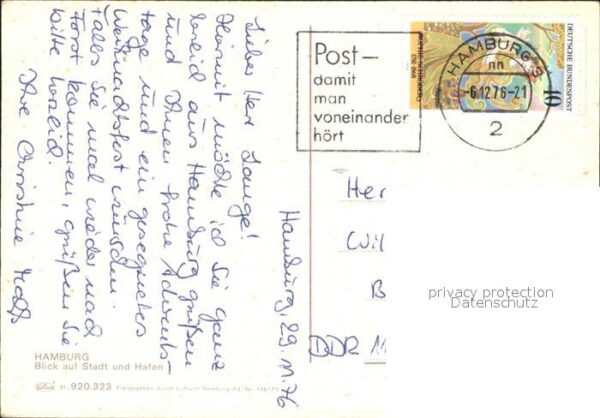 Hamburg, 29.11.76
Lieber Herr Lange!
Hiermit möchte ich Sie ganz
herzlich aus Hamburg grüßen
und Ihnen frohe Advents-
tage und ein gesegnetes
Weihnachtsfest wünschen.
Falls Sie mal wieder nach
Forst kommen, grüßen Sie
bitte
Ihre Christine
HAMBURG
Blick auf Stadt und Hafen
31 920.323 Freigegeben durch Luftamt Hamburg
Post –
damit
man
voneinander
hört
HAMBURG 3
nn
-6.12.76-21
2
DEUTSCHE BUNDESPOST
10
Her
Wil
B
DDR 11
privacy protection
Datenschutz